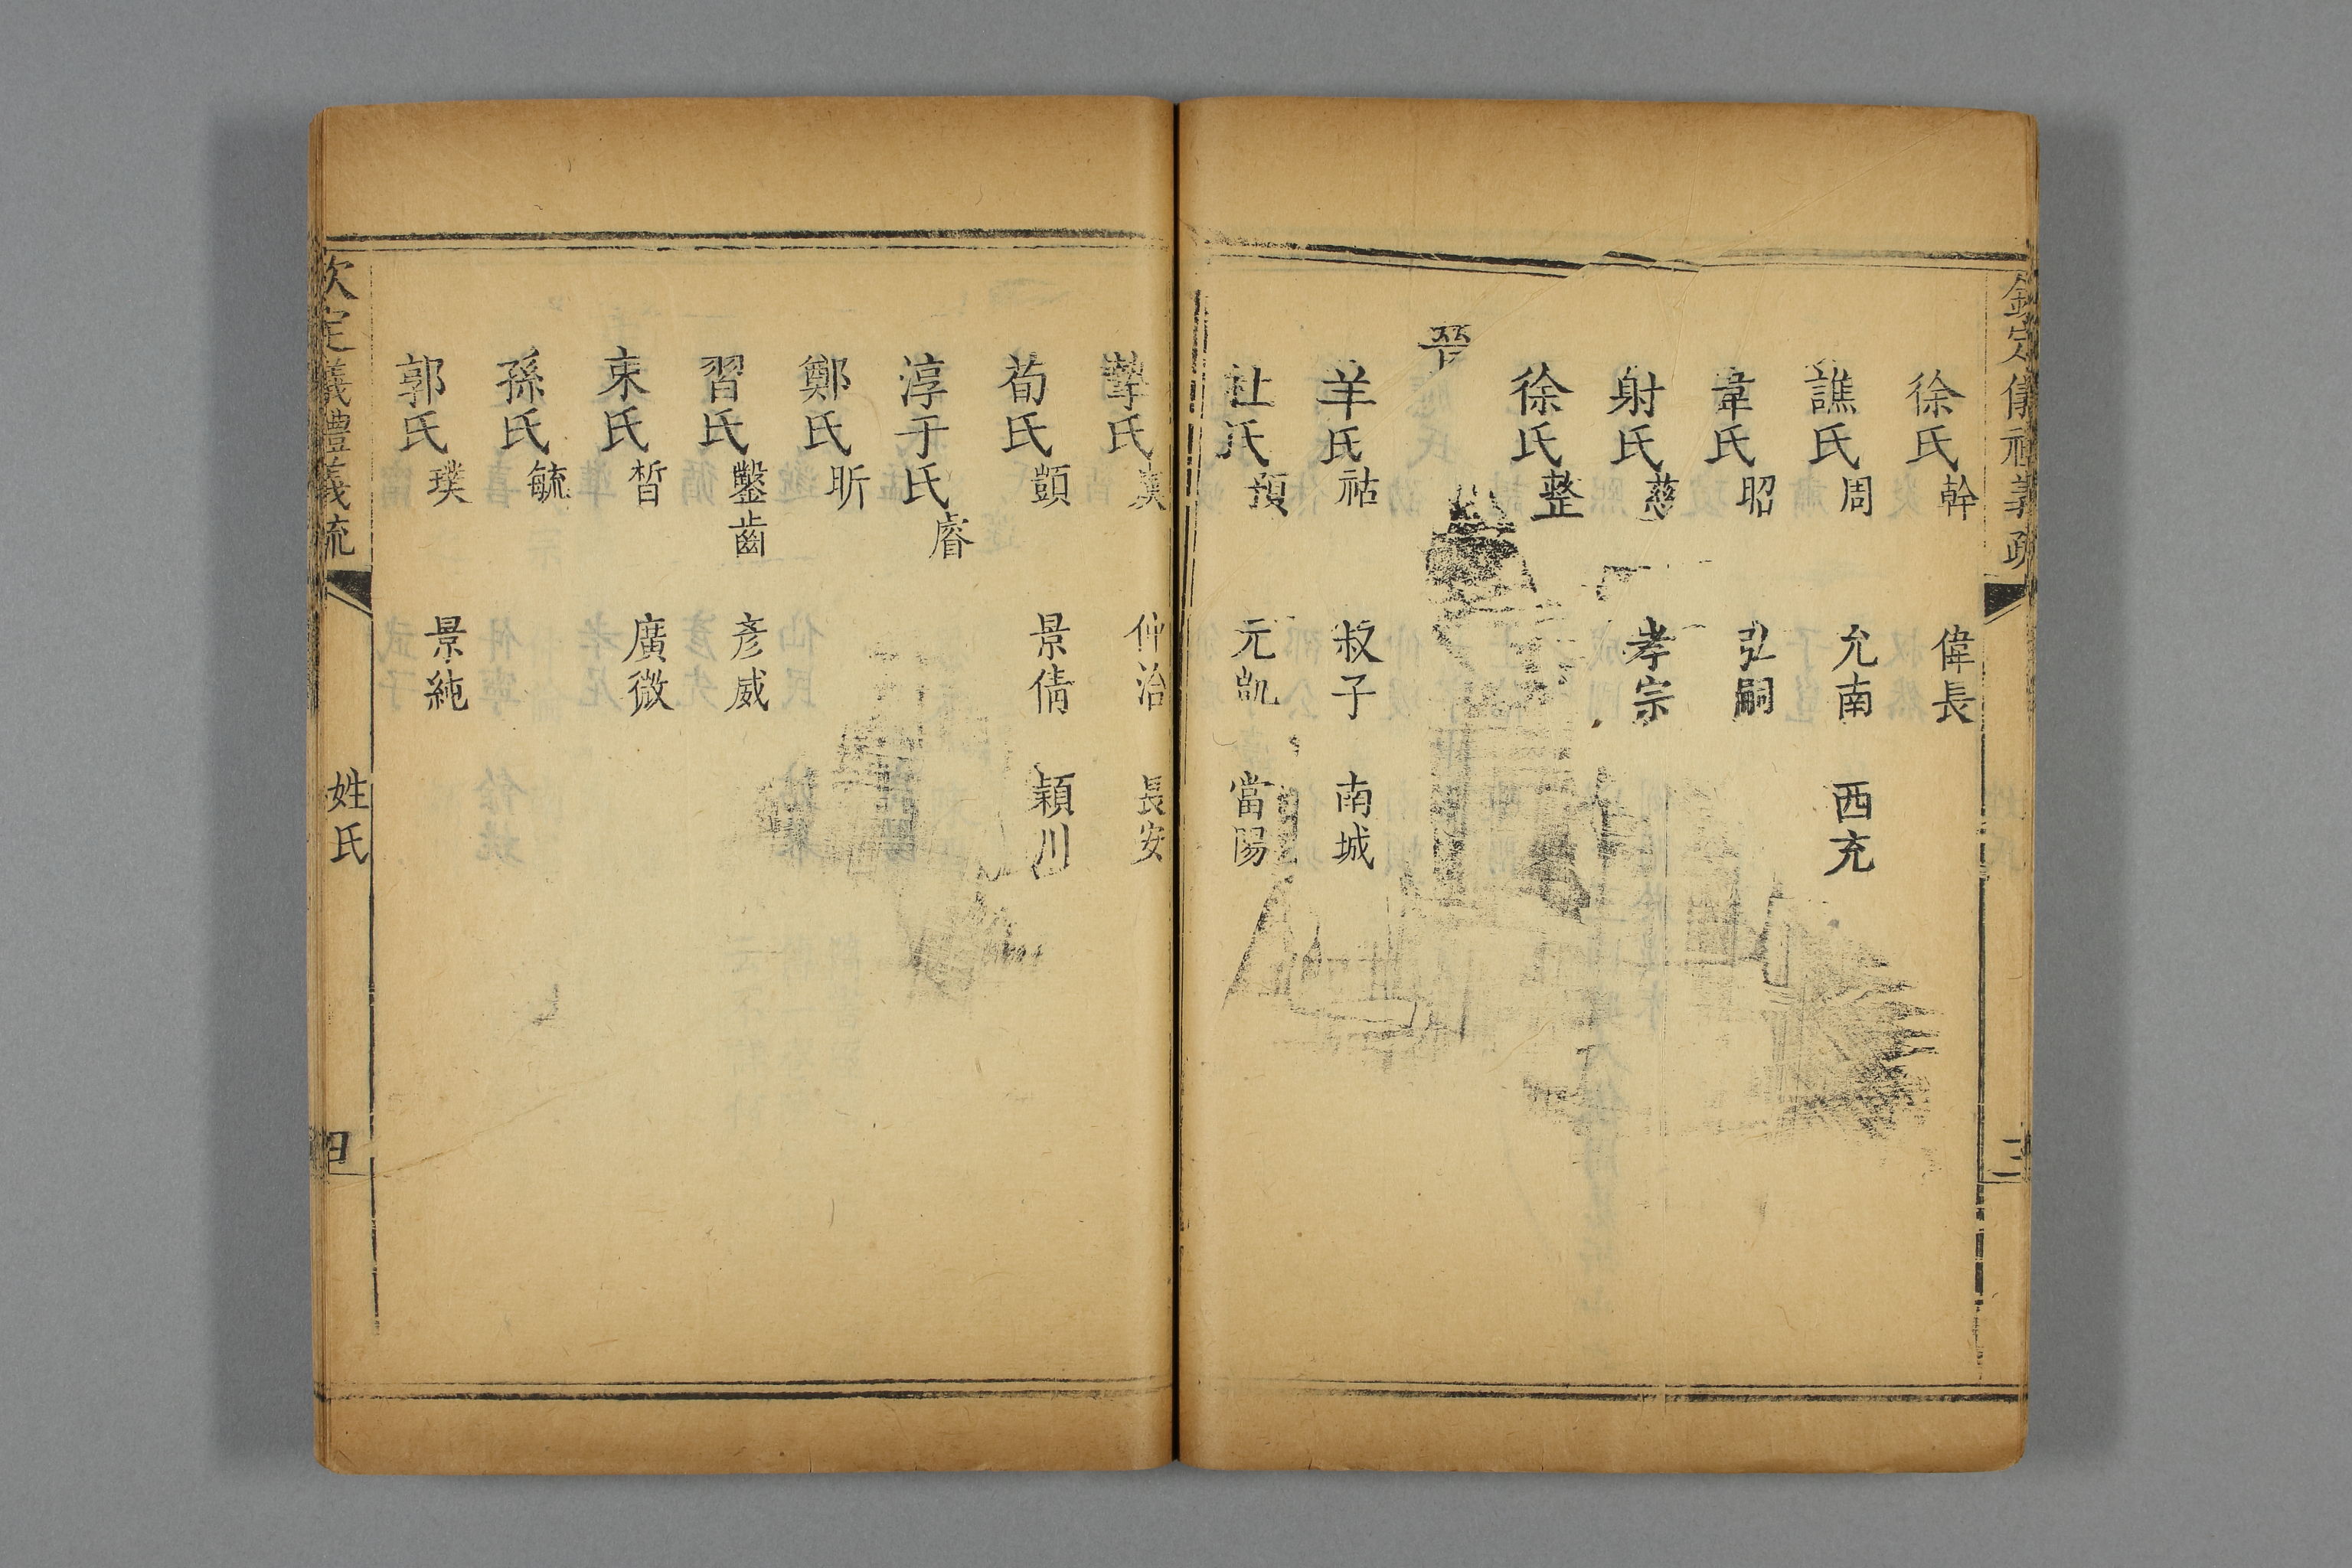 欽定儀禮義疏 三
徐氏幹 偉長
譙氏周 允南 西充
韋氏昭 弘嗣
射氏慈 孝宗
徐氏整
晉
羊氏祜 叔子 南城
杜氏預 元凱 當陽
摯氏虞 仲治 長安
荀氏顗 景倩 潁川
淳于氏睿
鄭氏昕
習氏鑿齒 彥威
束氏晳 廣微
孫氏毓
郭氏璞 景純
欽定儀禮義疏 姓氏 四